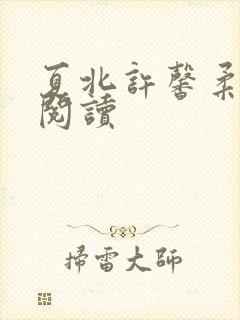 夏北許馨柔
閱讀
掃雷大師